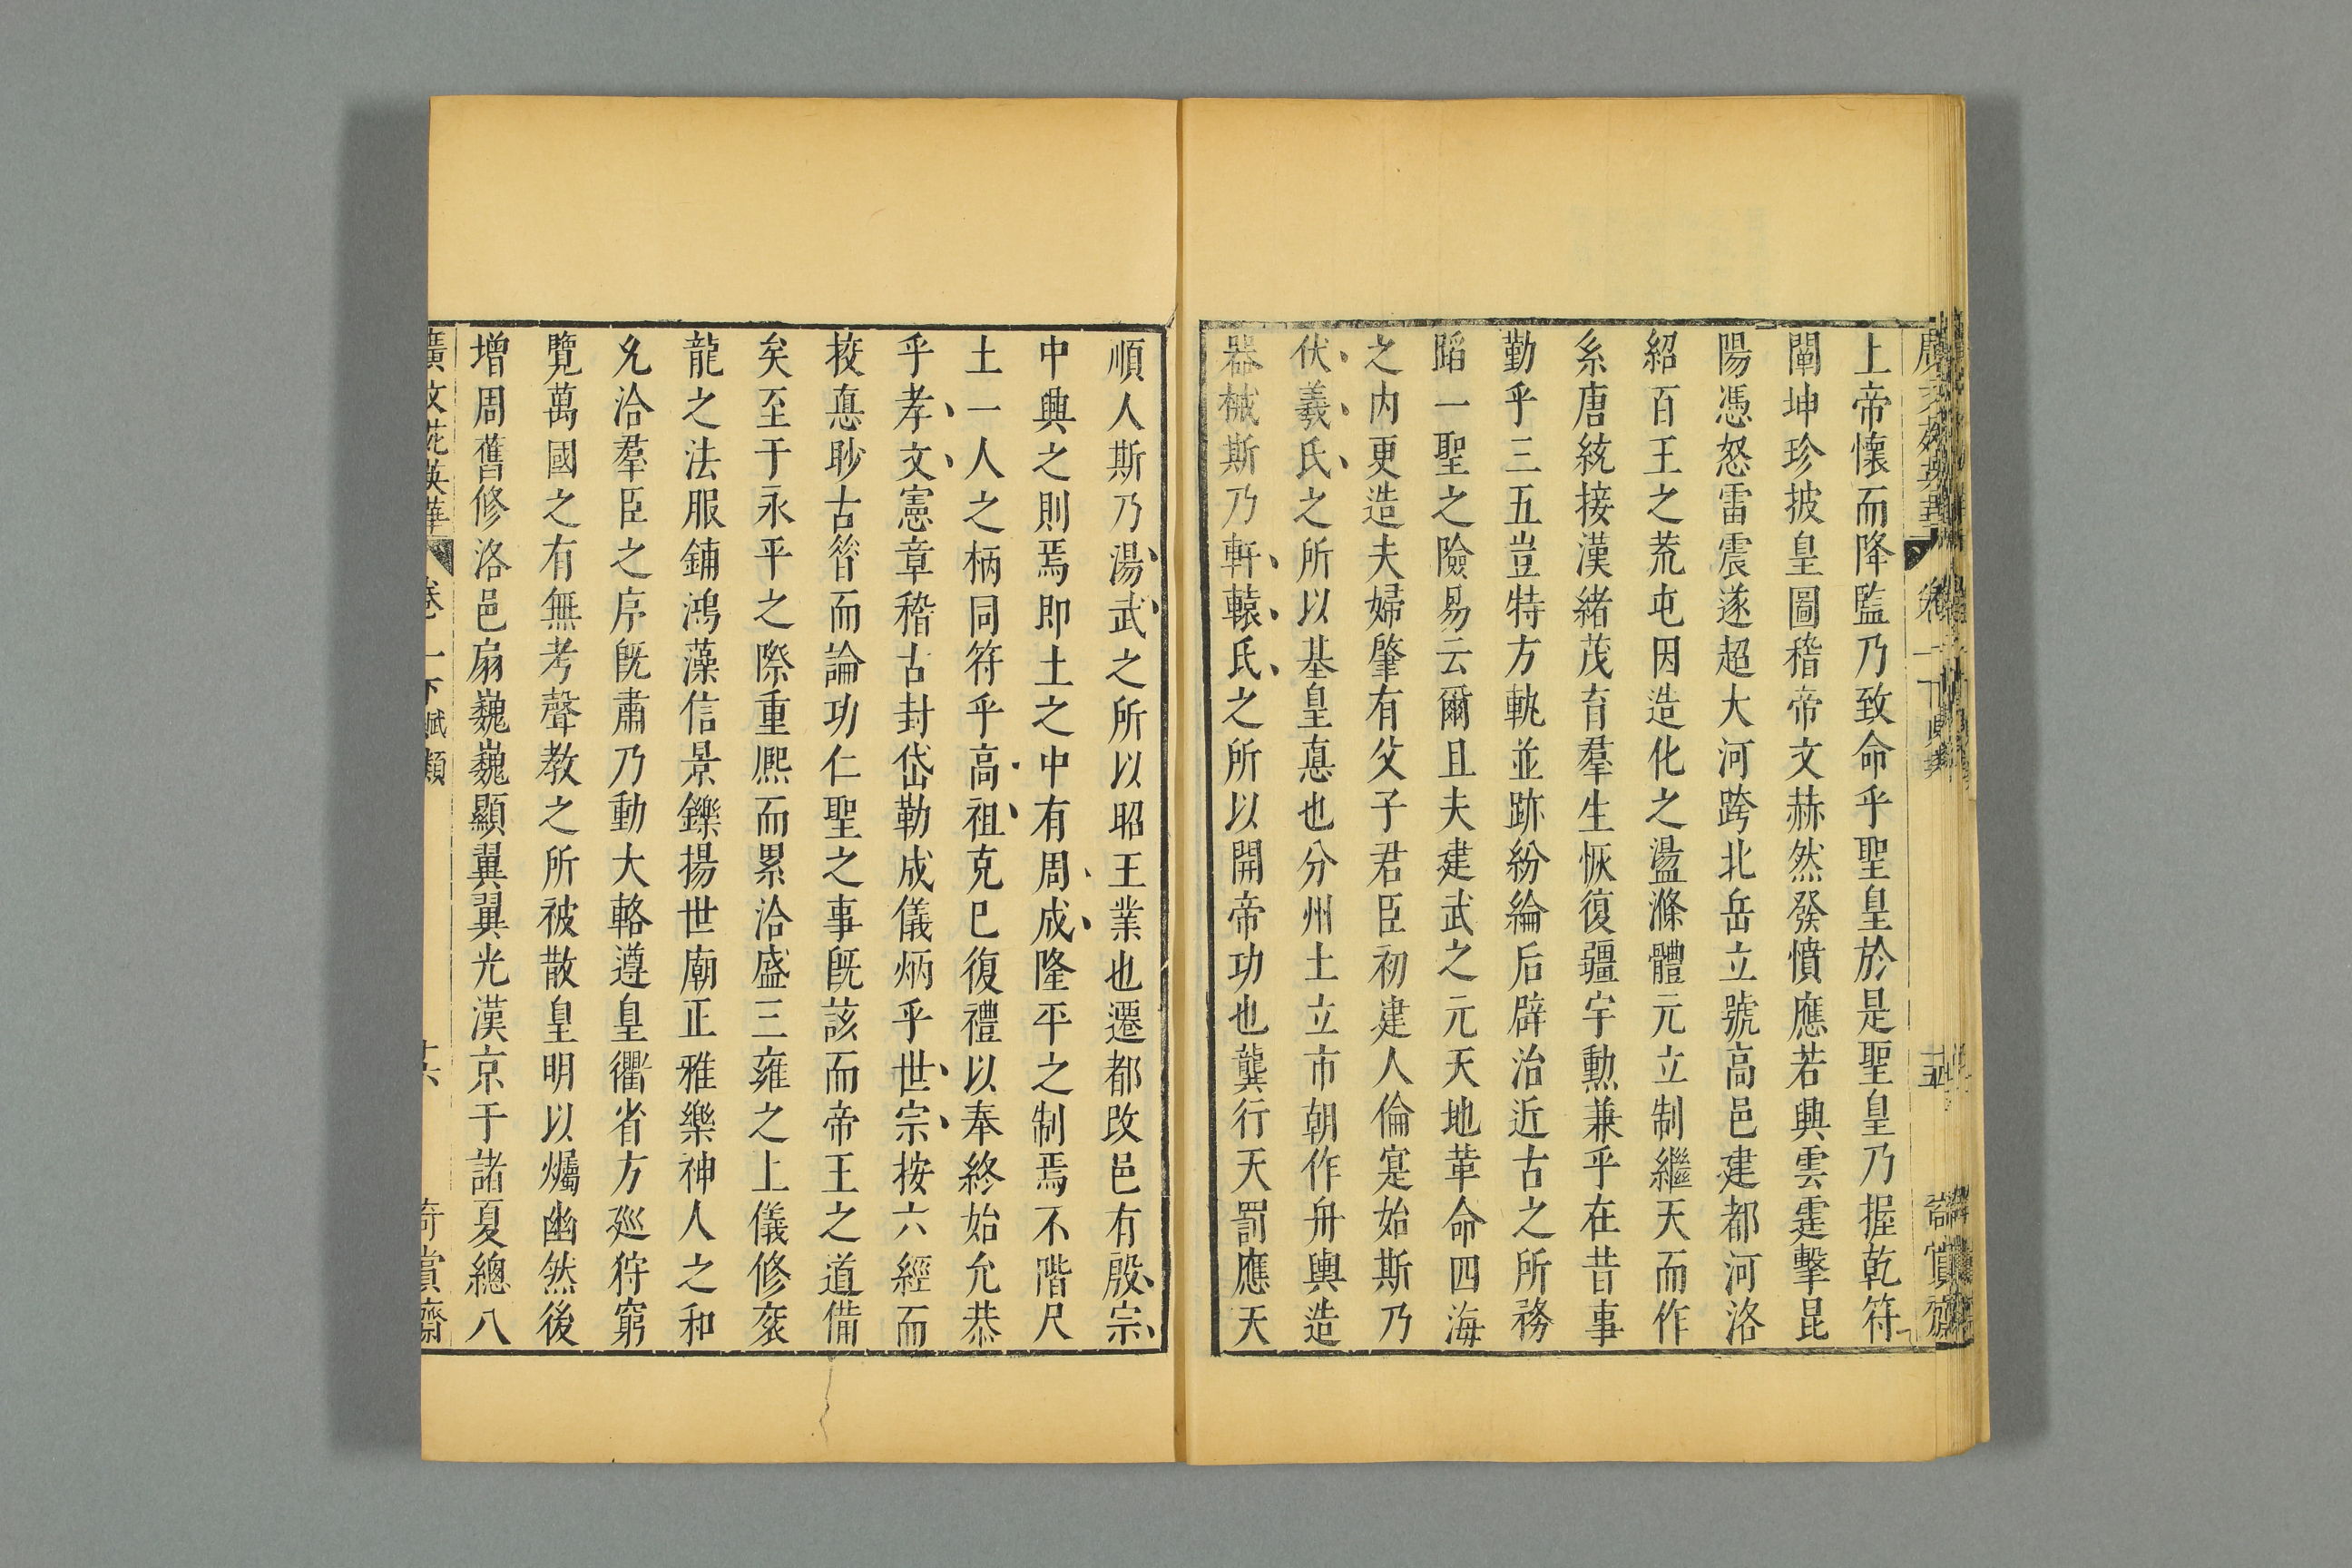 上帝懷而降監乃致命乎聖皇於是聖皇乃握乾符
闡坤珍披皇圖稽帝文赫然發憤應若興雲霆擊昆
陽憑怒雷震遂超大河跨北岳立號高邑建都河洛
紹百王之荒屯因造化之盪滌體元立制繼天而作
系唐統接漢緒茂育羣生恢復疆宇勳兼乎在昔事
勤乎三五豈特方軌並跡紛綸后辟治近古之所務
蹈一聖之險易云爾且夫建武之元天地革命四海
之内更造夫婦肇有父子君臣初建人倫寔始斯乃
伏羲氏之所以基皇悳也分州土立市朝作舟輿造
器械斯乃軒轅氏之所以開帝功也龔行天罰應天
順人斯乃湯武之所以昭王業也遷都改邑有殷宗
中興之則焉即土之中有周成隆平之制焉不階尺
土一人之柄同符乎高祖克己復禮以奉終始允恭
乎孝文憲章稽古封岱勒成儀炳乎世宗按六經而
挍悳眇古昝而論功仁聖之事旣該而帝王之道備
矣至于永平之際重熈而累洽盛三雍之上儀修衮
龍之法服鋪鴻藻信景鑠揚世廟正雅樂神人之和
允洽羣臣之序旣肅乃動大輅遵皇衢省方廵狩窮
覽萬國之有無考聲教之所被散皇明以爥幽然後
增周舊修洛邑扇巍巍顯翼翼光漢京于諸夏總八
廣文苑英華 卷一下 賦類 十六 奇賞齋